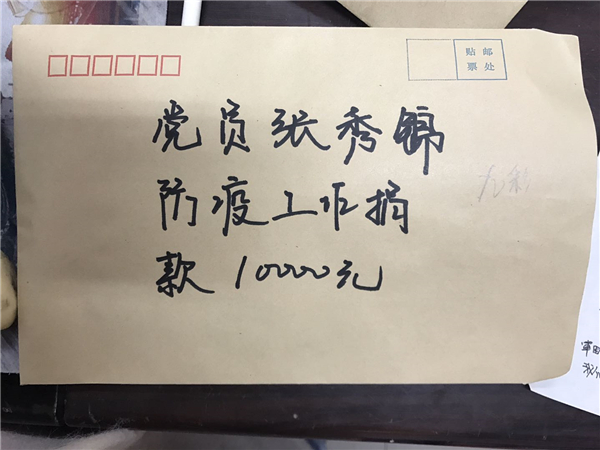 贴邮
票处
党员张秀锦
防疫工作捐
款10000元